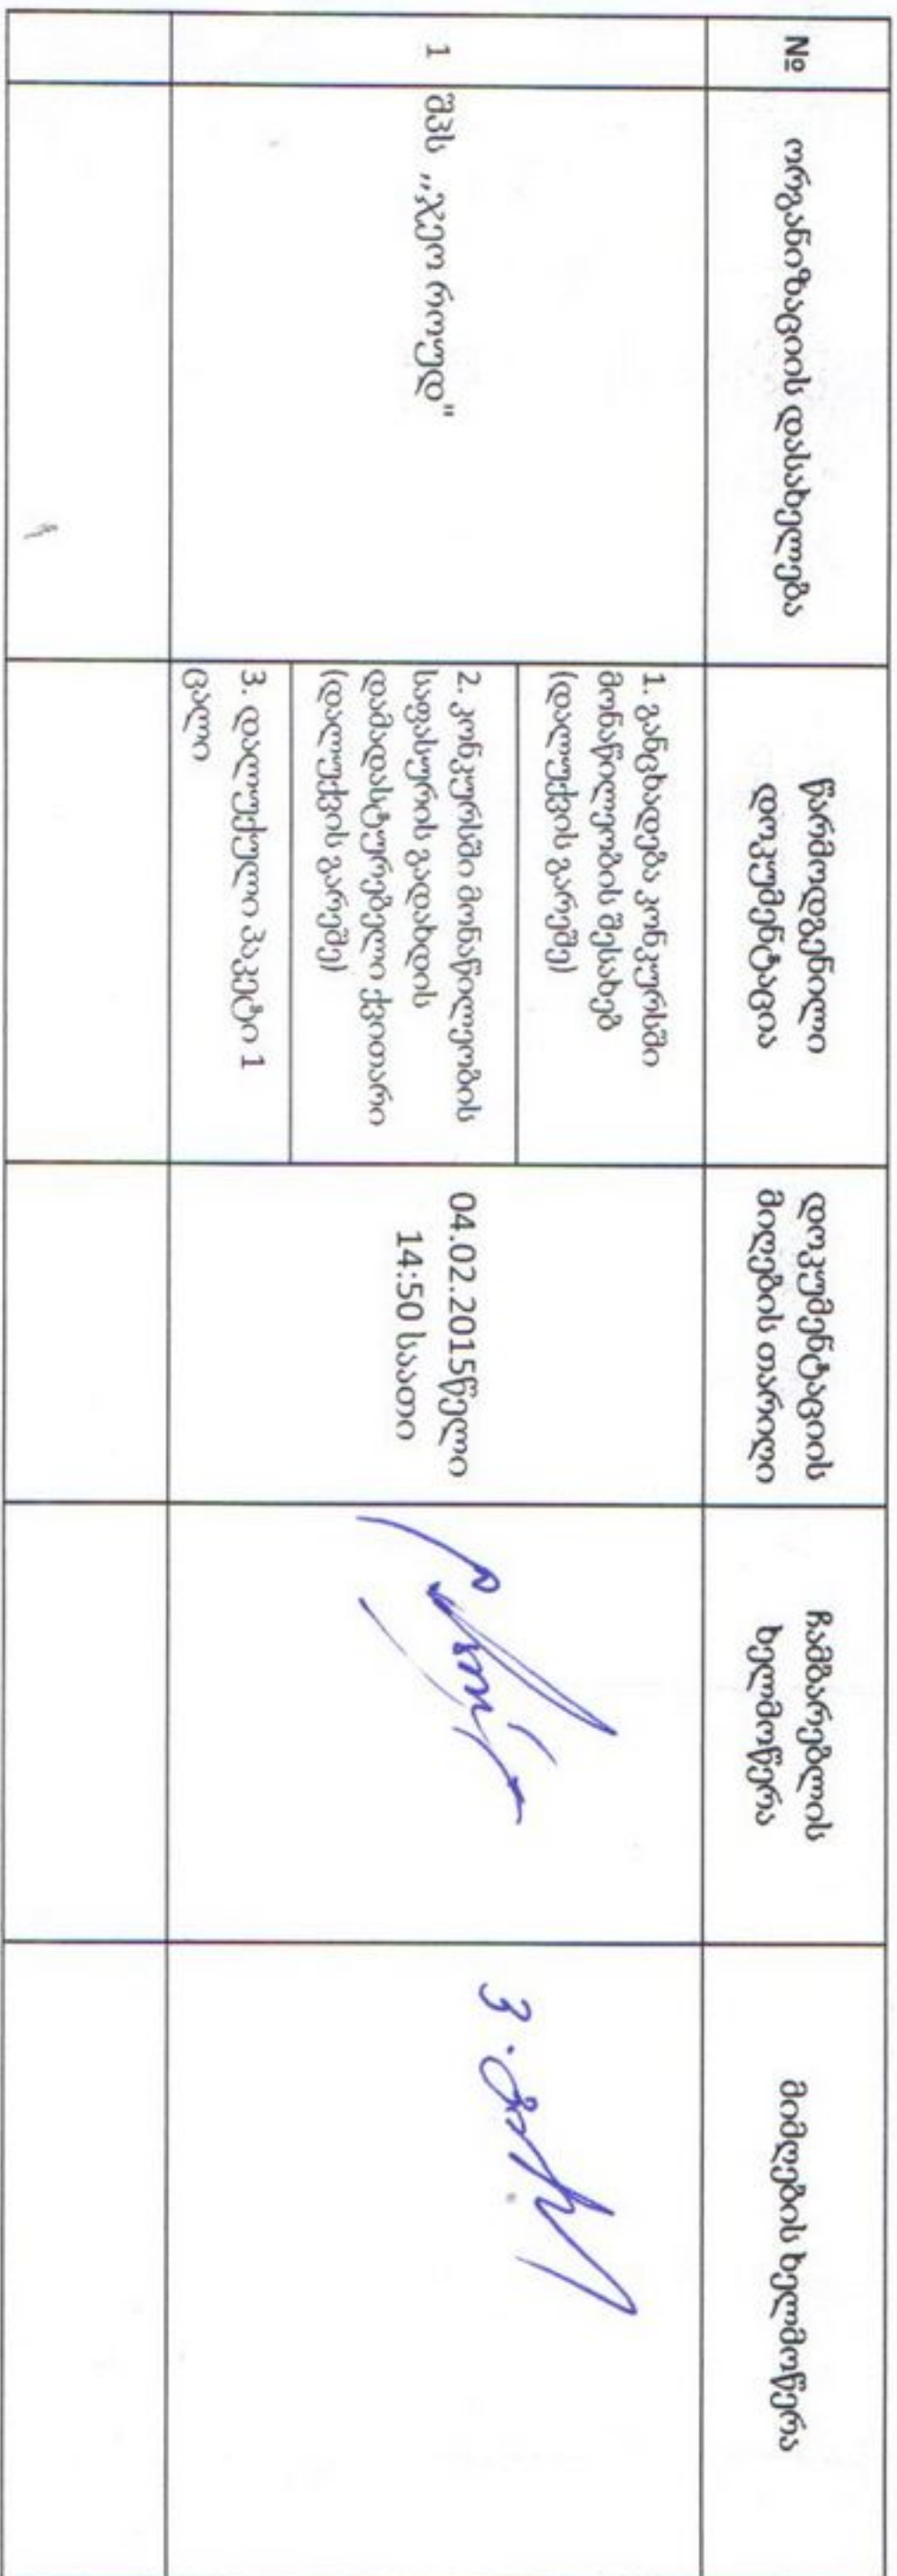 №
ორგანიზაციის დასახელება
წარმოდგენილი
დოკუმენტაცია
დოკუმენტაციის
მიღების თარიღი
ჩამბარებლის
ხელმოწერა
მიმღების ხელმოწერა
1
შპს „ჯეო როუდ"
1. განცხადება კონკურსში
მონაწილეობის შესახებ
(დალუქვის გარეშე)
2. კონკურსში მონაწილეობის
საფასურის გადახდის
დამადასტურებელი ქვითარი
(დალუქვის გარეშე)
3. დალუქული პაკეტი 1
ცალი
04.02.2015წელი
14:50 საათი